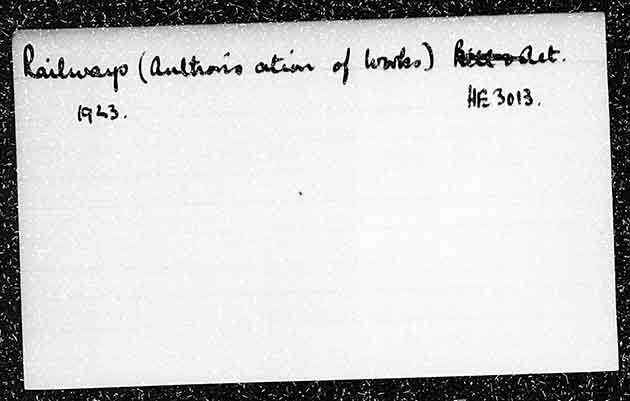 Railways (Authoris ation of Works) Act.
1923.
HE 3013.